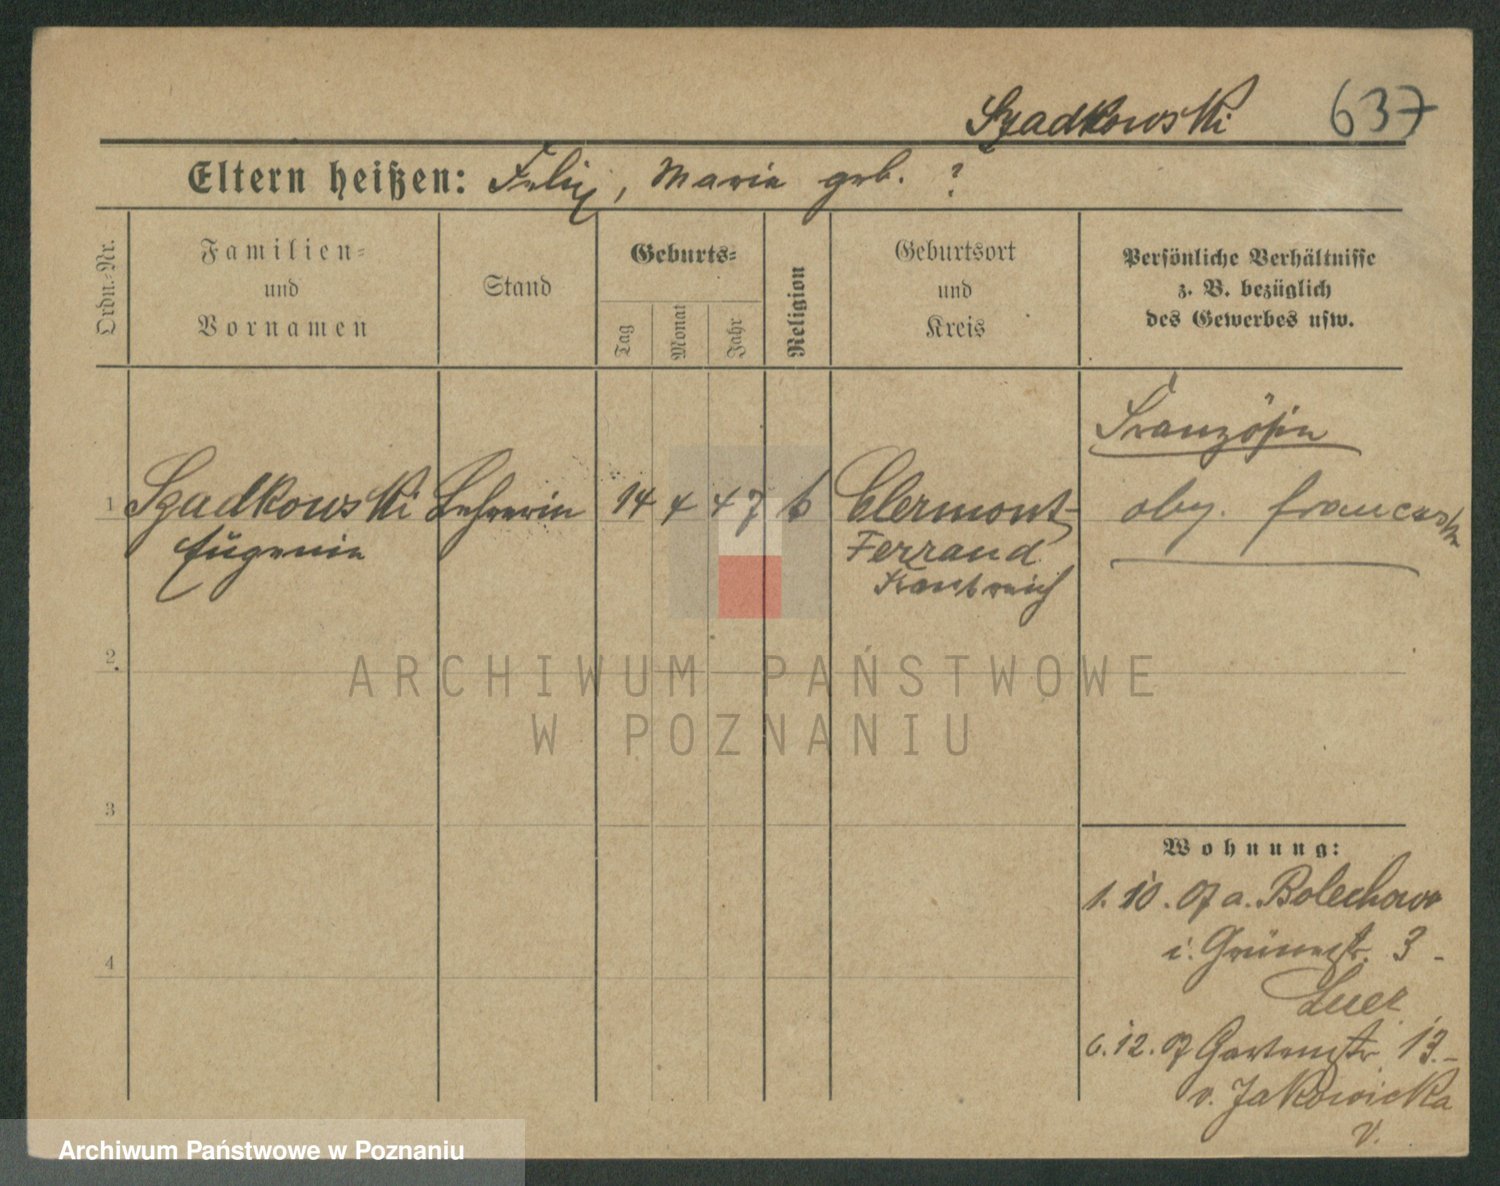 Szadkowski 637
Eltern heißen: Felix, Marie geb. ?
Ordn.-Nr.
Familien-
und
Vornamen
Stand
Geburts-
Tag
Monat
Jahr
Religion
Geburtsort
und
Kreis
Persönliche Verhältnisse
z. B. bezüglich
des Gewerbes usw.
Französin
1 Szadkowski Lehrerin 14 4 47 k Clermont-
Eugenie Ferrand
Frankreich
oby. francuska
2
3
4
Wohnung:
1.10.07 a. Bolechowo
i. Grünestr. 3 -
6.12.07 Gartenstr. 13.-
v. Jakowicka
V.
ARCHIWUM PAŃSTWOWE
W POZNANIU
Archiwum Państwowe w Poznaniu